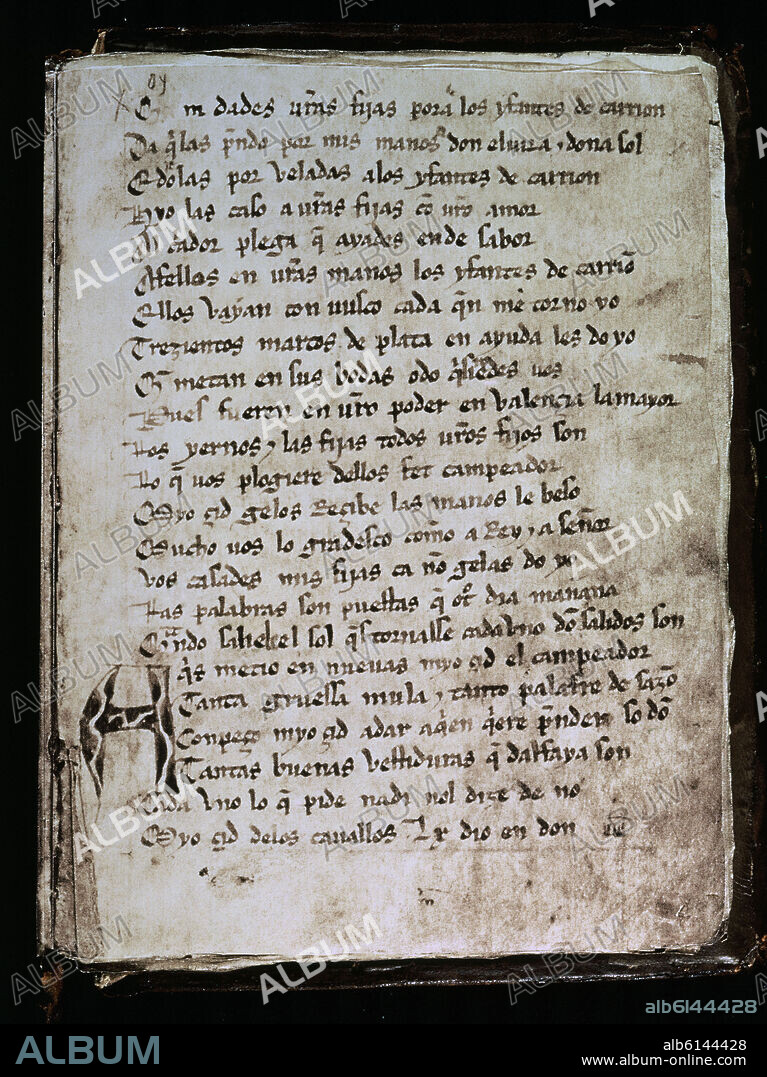 oy
E m dades vr̃as fijas pora los yfantes de carrion
Da q̃las p̃ndo por mis manos don eluira ⁊ doña sol
E dolas por veladas a los yfantes de carrion
Hyo las caso a vr̃as fijas cõ vr̃o amor
Al Cador plega q̃ ayades ende sabor
Afellos en vr̃as manos los yfantes de carriõ
Ellos vayan con vusco cada q̃n me torno yo
Trezientos marcos de plata en ayuda les do yo
Q̃ metan en sus bodas o do q̃sieredes uos
Pues fueren en vr̃o poder en valençia la mayor
Los yernos ⁊ las fijas todos vr̃os fijos son
Lo q̃ uos plogiere dellos fet campeador
Myo çid gelos Reçibe las manos le beso
Mucho uos lo gradesco como a Rey ⁊ a señor
Vos casades mis fijas ca nõ gelas do yo
Las palabras son puestas q̃ ot̃ dia mañana
Quando salie el sol q̃s tornasse cada vno dõ salidos son
Aq̃s metio en nueuas myo çid el campeador
Tanta gruessa mula ⁊ tanto palafre de sazõ
Conpeço myo çid a dar a q̃en q̃ere p̃nder so dõ
Tantas buenas vestiduras q̃ dalfaya son
Cada vno lo q̃ pide nadi nol dize de no
Myo çid delos cauallos Lx dio en don
ALBUM
alb6144428
ALBUM
alb6144428
www.album-online.com